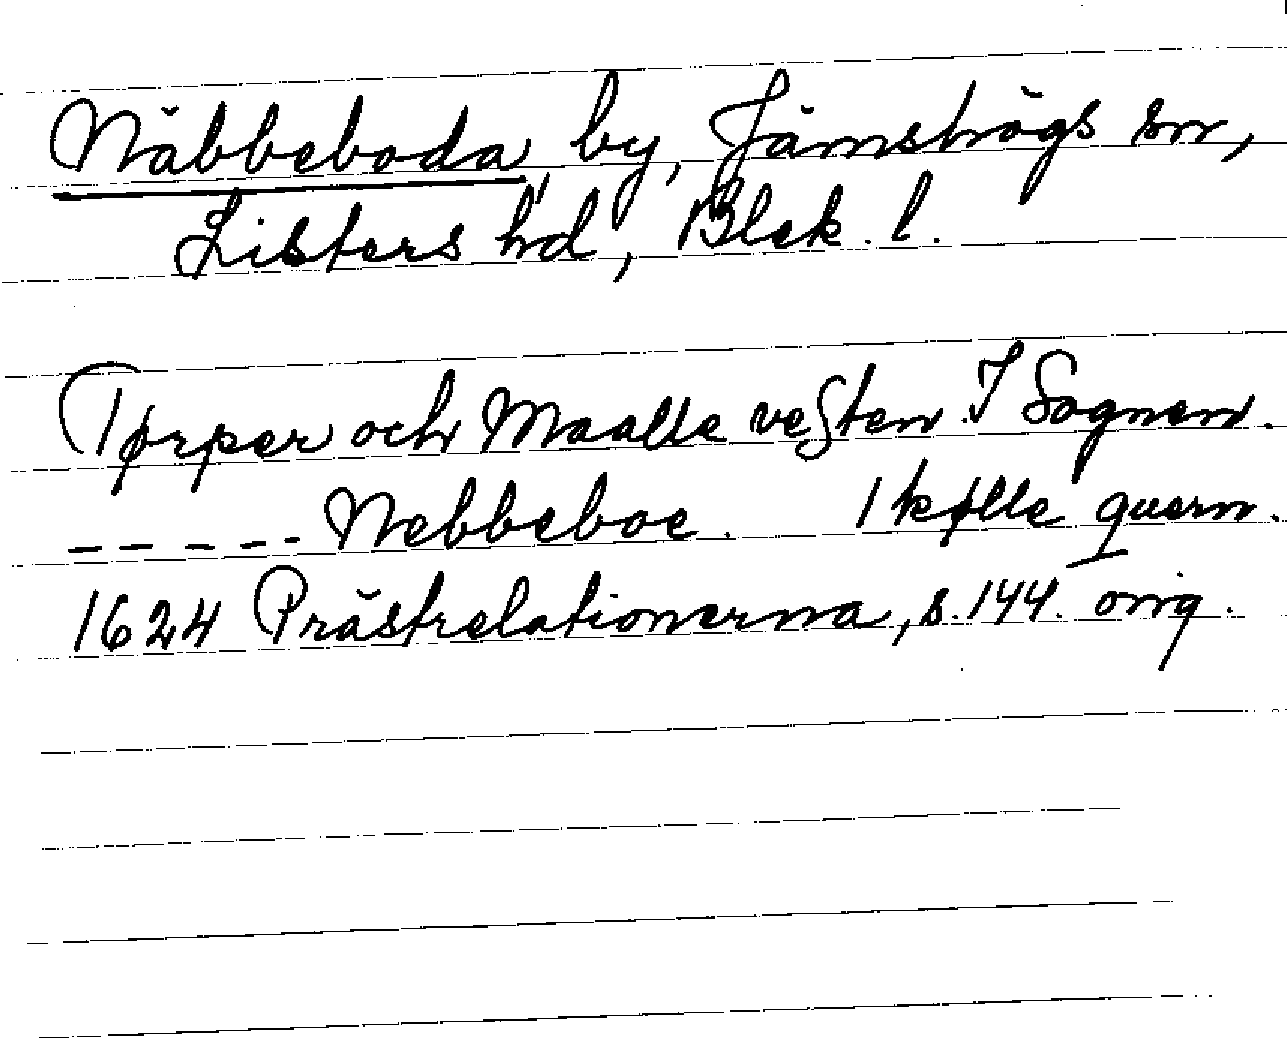 Näbbeboda, by, Jämshögs sn,
Listers hd, Blek. l.
Tørper och Maalle vesten I Sognen.
- - - - - Nebbeboe. 1 kølle quern.
1624 Prästrelationerna, s. 144. orig.